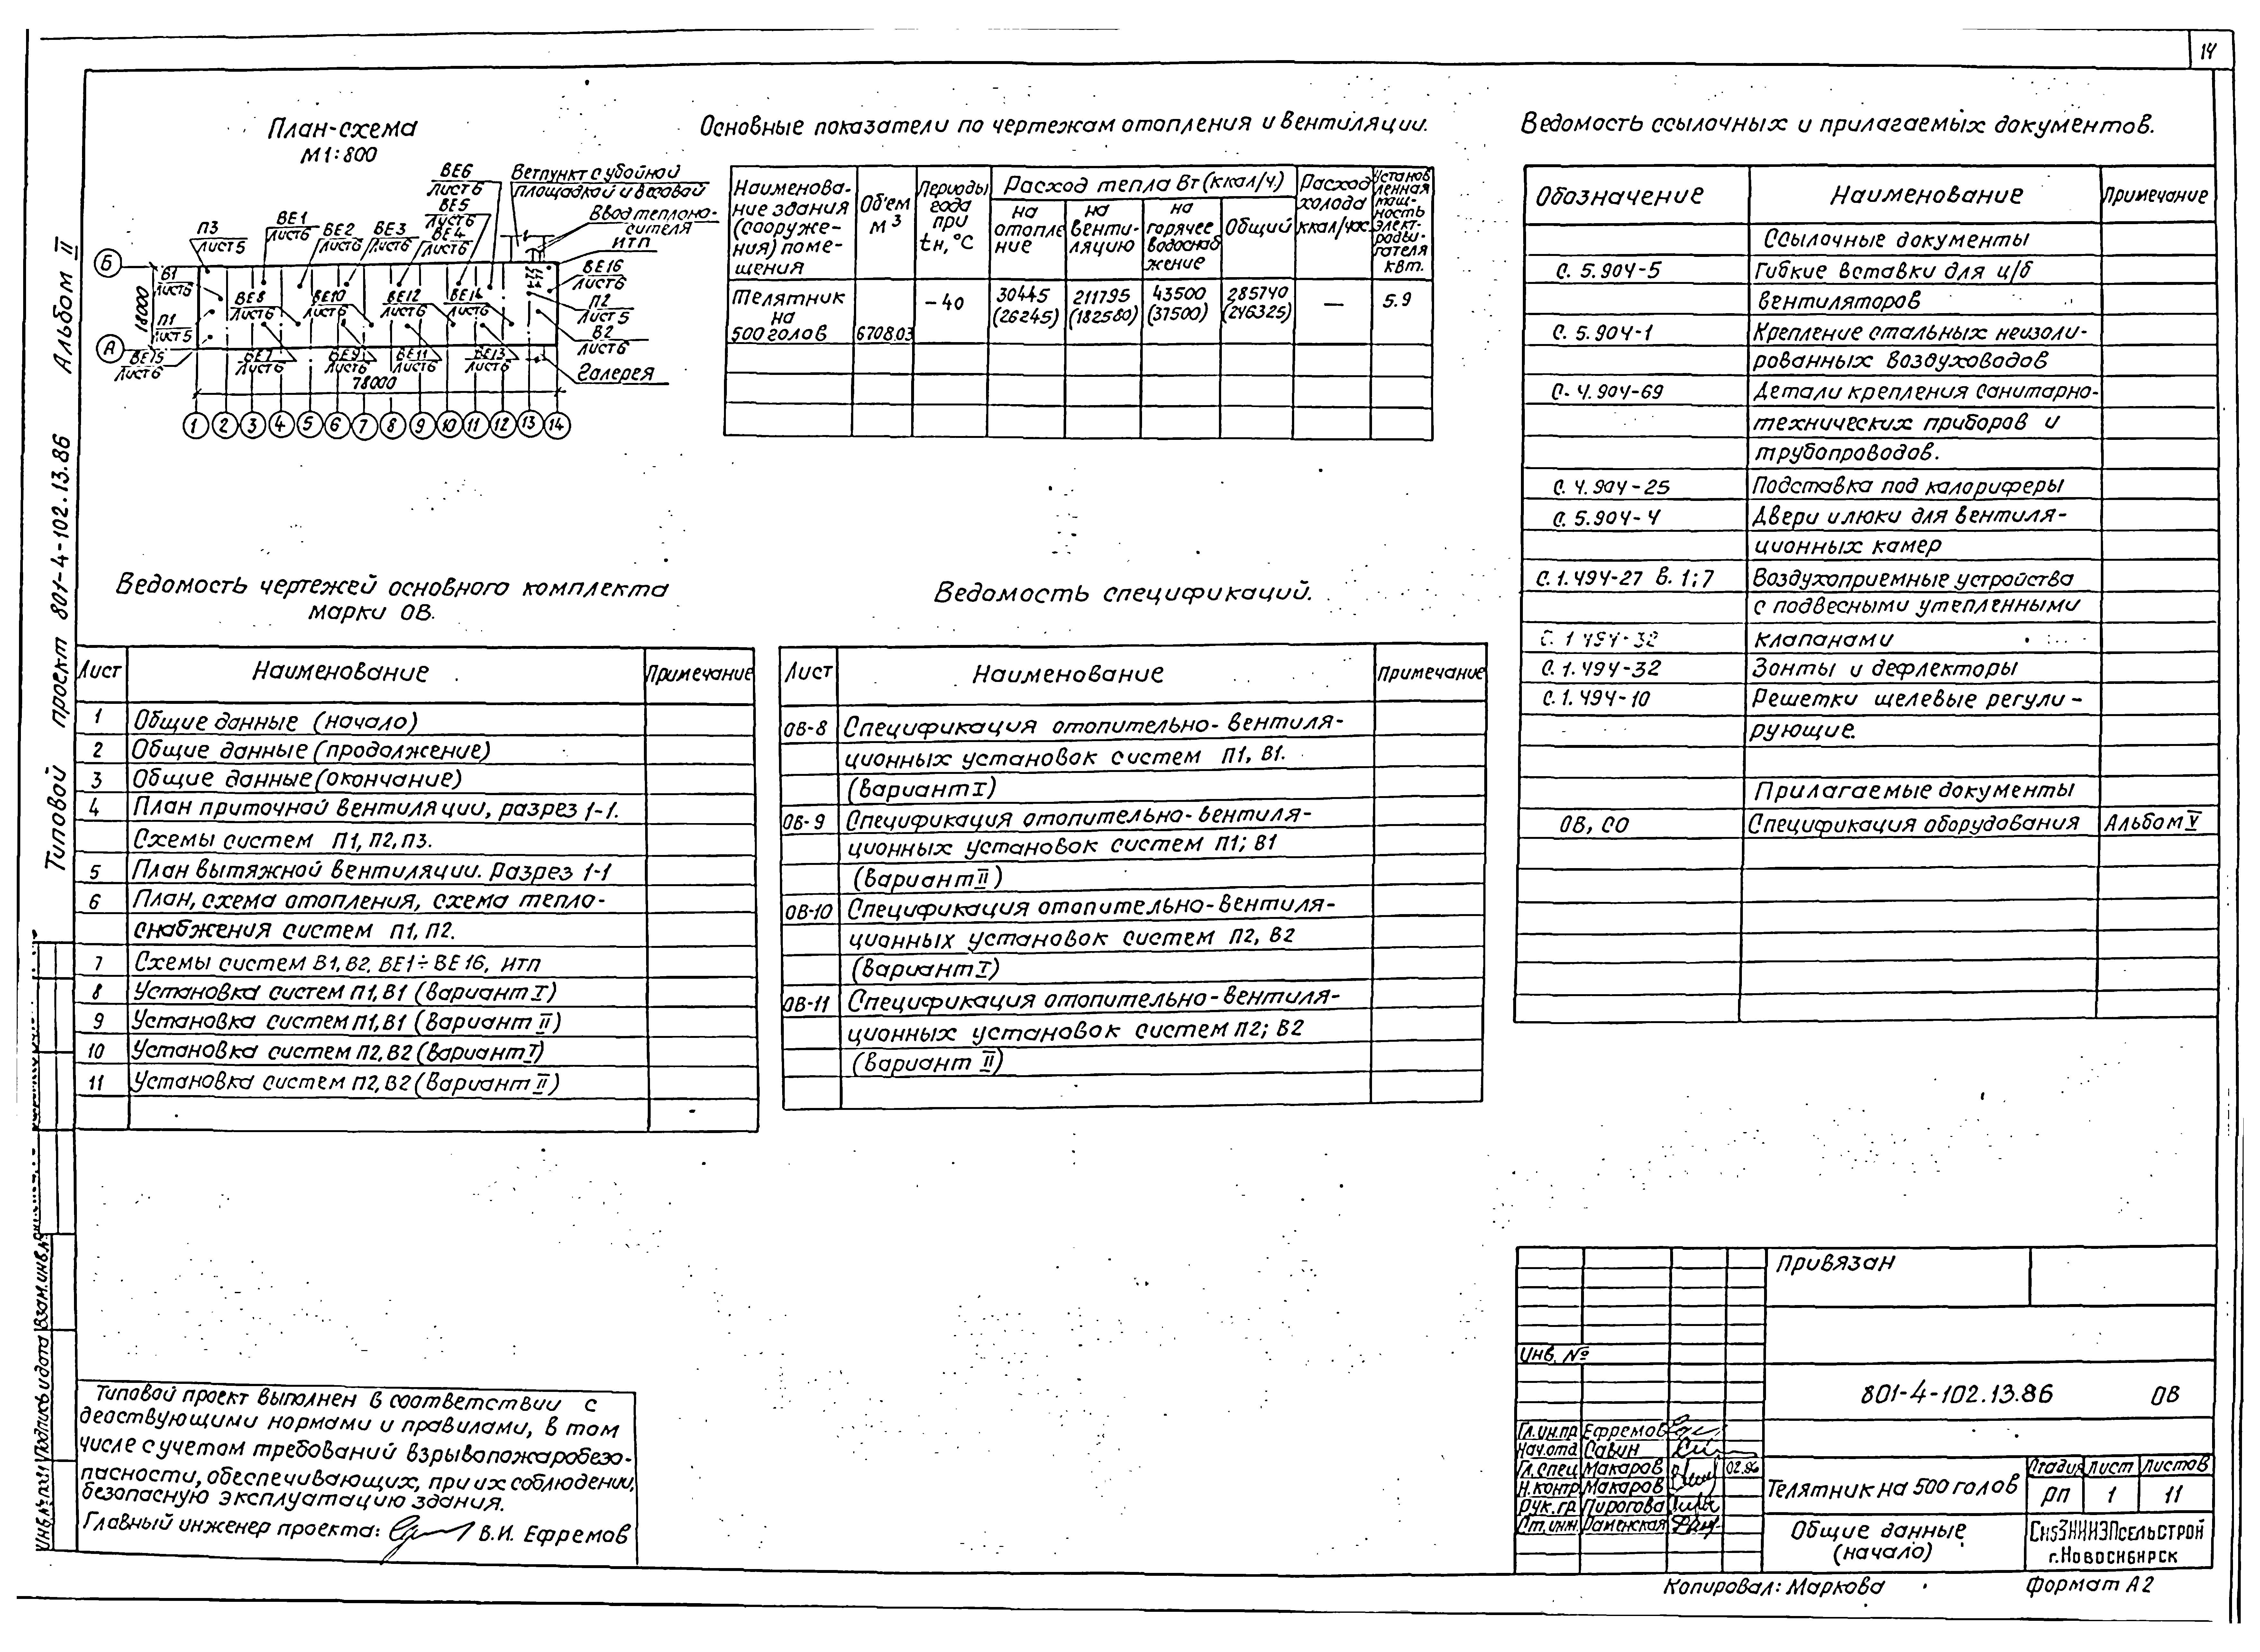 14
План-схема
М1:800
ВЕ6
Лист 6
ВЕ5
Лист 6
ВЕ4
Лист 6
Ветпункт с убойной
площадкой и весовой
Ввод теплоно-
сителя
ИТП
П3
Лист 5
ВЕ1
Лист 6
ВЕ2
Лист 6
ВЕ3
Лист 6
Б
В1
Лист 6
18000
П1
Лист 5
А
ВЕ15
Лист 6
ВЕ8
Лист 6
ВЕ10
Лист 6
ВЕ12
Лист 6
ВЕ14
Лист 6
ВЕ16
Лист 6
П2
Лист 5
В2
Лист 6
ВЕ7
Лист 6
ВЕ9
Лист 6
ВЕ11
Лист 6
ВЕ13
Лист 6
Галерея
78000
1 2 3 4 5 6 7 8 9 10 11 12 13 14
Основные показатели по чертежам отопления и вентиляции.
Наименова-
ние здания
(сооруже-
ния) поме-
щения
Объем
м³
Периоды
года
при
tн, °С
Расход тепла Вт (ккал/ч.)
на
отопле
ние
на
венти-
ляцию
на
горячее
водоснаб
жение
Общий
Расход
холода
ккал/час
Установ
ленная
мощ-
ность
элект-
родви-
гателя
квт.
Телятник
на
500 голов
6708.03
-40
30445
(26245)
211795
(182580)
43500
(37500)
285740
(246325)
—
5.9
Ведомость ссылочных и прилагаемых документов.
Обозначение Наименование Примечание
Ссылочные документы
С. 5.904-5 Гибкие вставки для ц/б
вентиляторов
С. 5.904-1 Крепление стальных неизоли-
рованных воздуховодов
С. 4.904-69 Детали крепления санитарно-
технических приборов и
трубопроводов.
С. 4.904-25 Подставка под калориферы
С. 5.904-4 Двери и люки для вентиля-
ционных камер
С.1.494-27 в. 1;7 Воздухоприемные устройства
с подвесными утепленными
клапанами
С.1.494-32 Зонты и дефлекторы
С.1.494-10 Решетки щелевые регули-
рующие.
Прилагаемые документы
ОВ, СО Спецификация оборудования Альбом V
Ведомость чертежей основного комплекта
марки ОВ.
Лист Наименование Примечание
1 Общие данные (начало)
2 Общие данные (продолжение)
3 Общие данные (окончание)
4 План приточной вентиляции, разрез 1-1.
Схемы систем П1, П2, П3.
5 План вытяжной вентиляции. Разрез 1-1
6 План, схема отопления, схема тепло-
снабжения систем П1, П2.
7 Схемы систем В1, В2, ВЕ1÷ВЕ16, ИТП
8 Установка систем П1, В1 (вариант I)
9 Установка систем П1, В1 (вариант II)
10 Установка систем П2, В2 (вариант I)
11 Установка систем П2, В2 (вариант II)
Ведомость спецификаций.
Лист Наименование Примечание
ОВ-8 Спецификация отопительно-вентиля-
ционных установок систем П1, В1.
(вариант I)
ОВ-9 Спецификация отопительно-вентиля-
ционных установок систем П1; В1
(вариант II)
ОВ-10 Спецификация отопительно-вентиля-
ционных установок систем П2, В2
(вариант I)
ОВ-11 Спецификация отопительно-вентиля-
ционных установок систем П2; В2
(вариант II)
Типовой проект 801-4-102.13.86 Альбом II
Инв.№подл Подпись и дата Взам.инв.№
Типовой проект выполнен в соответствии с
действующими нормами и правилами, в том
числе с учетом требований взрывопожаробезо-
пасности, обеспечивающих, при их соблюдении,
безопасную эксплуатацию здания.
Главный инженер проекта: В.И. Ефремов
Привязан
Инв. №
801-4-102.13.86 ОВ
Гл.ин.пр Ефремов
Нач.отд Савин
Гл.спец Макаров 02.86
Н.контр Макаров
Рук.гр. Пирогова
Ст.инж. Раменская
Телятник на 500 голов
Стадия Лист Листов
РП 1 11
Общие данные
(начало)
СибЗНИИЭПсельстрой
г.Новосибирск
Копировал: Маркова формат А2